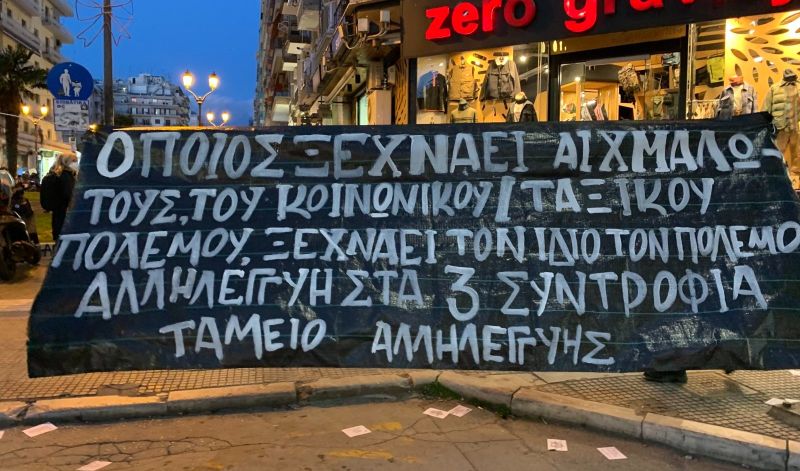 zero gravity
ΟΠΟΙΟΣ ΞΕΧΝΑΕΙ ΑΙΧΜΑΛΩ-
ΤΟΥΣ, ΤΟΥ ΚΟΙΝΩΝΙΚΟΥ/ΤΑΞΙΚΟΥ
ΠΟΛΕΜΟΥ, ΞΕΧΝΑΕΙ ΤΟΝ ΙΔΙΟ ΤΟΝ ΠΟΛΕΜΟ
ΑΛΛΗΛΕΓΓΥΗ ΣΤΑ 3 ΣΥΝΤΡΟΦΙΑ
ΤΑΜΕΙΟ ΑΛΛΗΛΕΓΓΥΗΣ